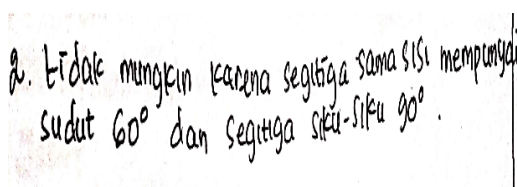 2. tidak mungkin karena segitiga sama sisi mempunyai
sudut 60° dan segitiga siku-siku 90°.